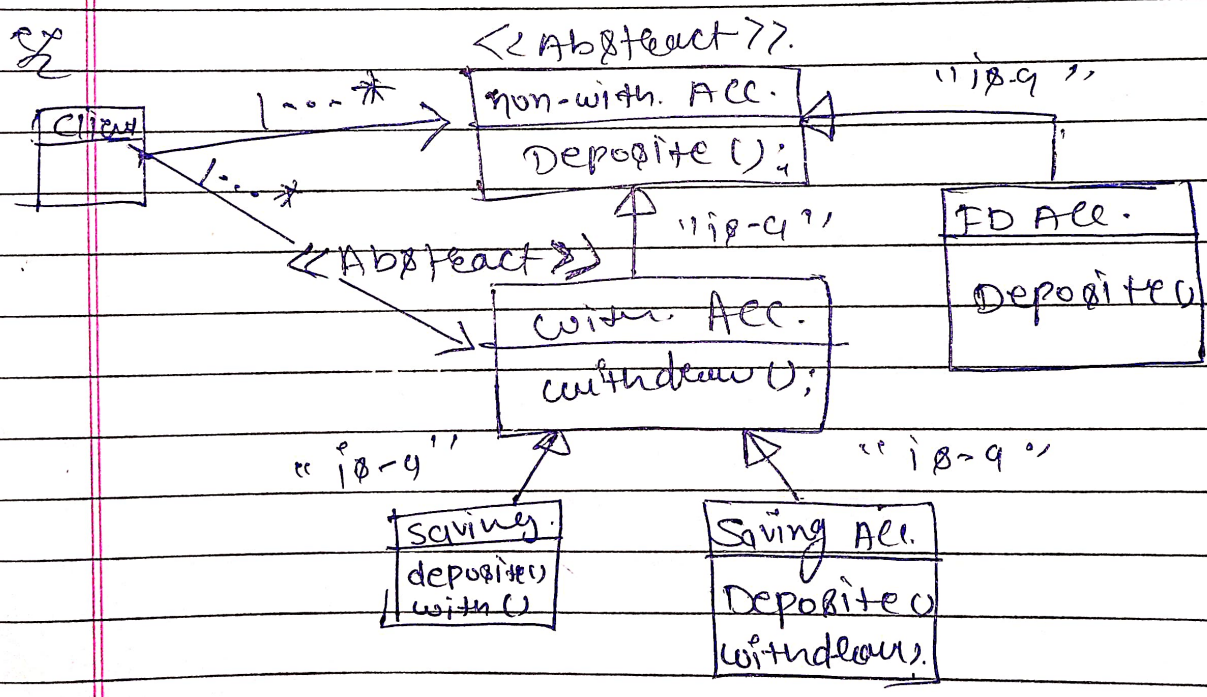 Ex
<<Abstract>>.
Client
1...*
non-with. Acc.
Deposite();
"is-a"
1...*
<<Abstract>>
"is-a"
FD Acc.
Deposite()
with. Acc.
withdraw();
"is-a"
"is-a"
saving.
deposite()
with()
Saving Acc.
Deposite()
withdraw().